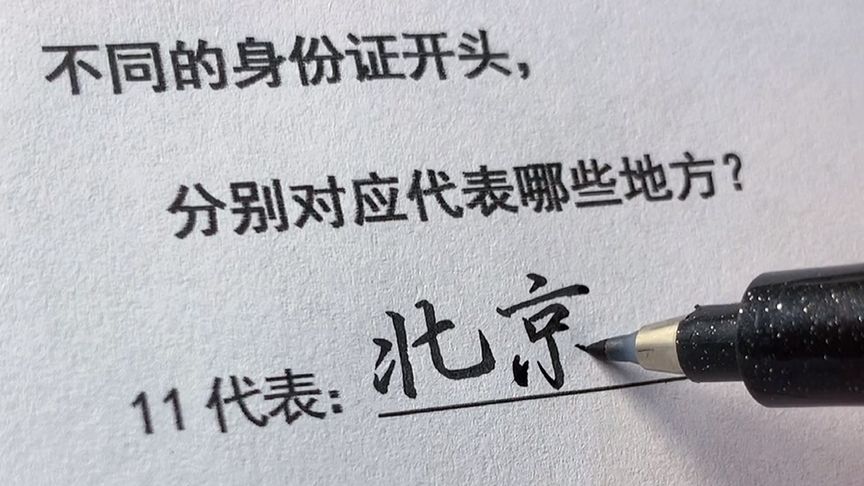 不同的身份证开头，
分别对应代表哪些地方？
11代表：北京